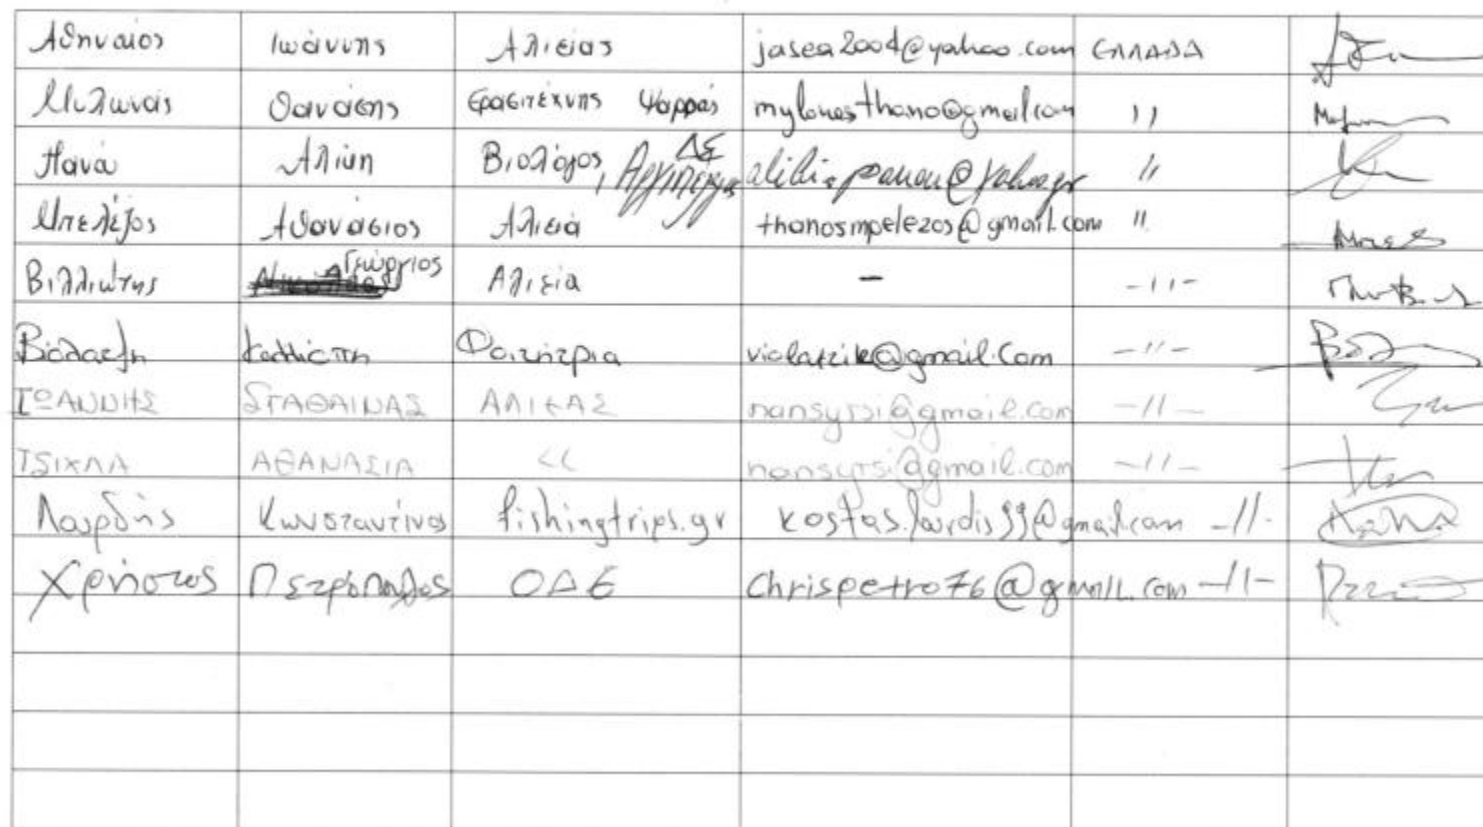 Αθηναίος Ιωάννης Αλιείας jasea2004@yahoo.com ΕΛΛΑΔΑ
Μυλωνάς Θανάσης Ερασιτέχνης Ψαράς mylonasthano@gmail.com ''
Πανά Αλίκη Βιολόγος, ΔΣ ''
Μπελέζος Αθανάσιος Αλιεία thanosmpelezos@gmail.com ''
Βιλλιώτης Γεώργιος Αλιεία - -''-
Καλλιόπη Φοιτήτρια violatzik@gmail.com -''-
ΙΩΑΝΝΗΣ ΣΤΑΘΑΙΝΑΣ ΑΛΙΕΑΣ nansytsi@gmail.com -//-
ΤΣΙΧΛΑ ΑΘΑΝΑΣΙΑ << nansytsi@gmail.com -//-
Λουρδής Κωνσταντίνος fishingtrips.gr kostas.lourdis99@gmail.com -//-
Χρήστος Πετρόπουλος ΟΔΕ chrispetro76@gmail.com -//-